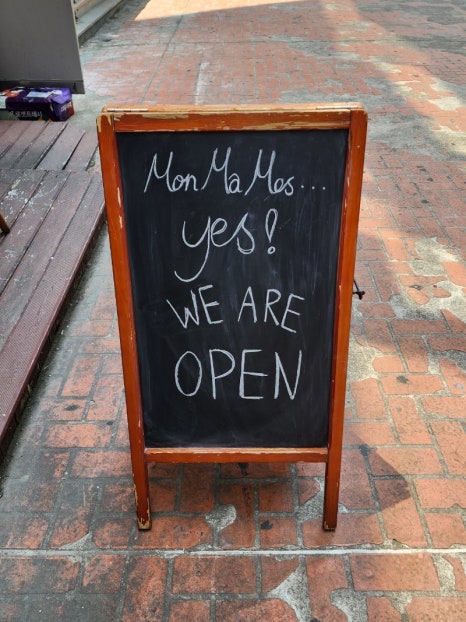 Mon Ma Mes...
yes!
WE ARE
OPEN